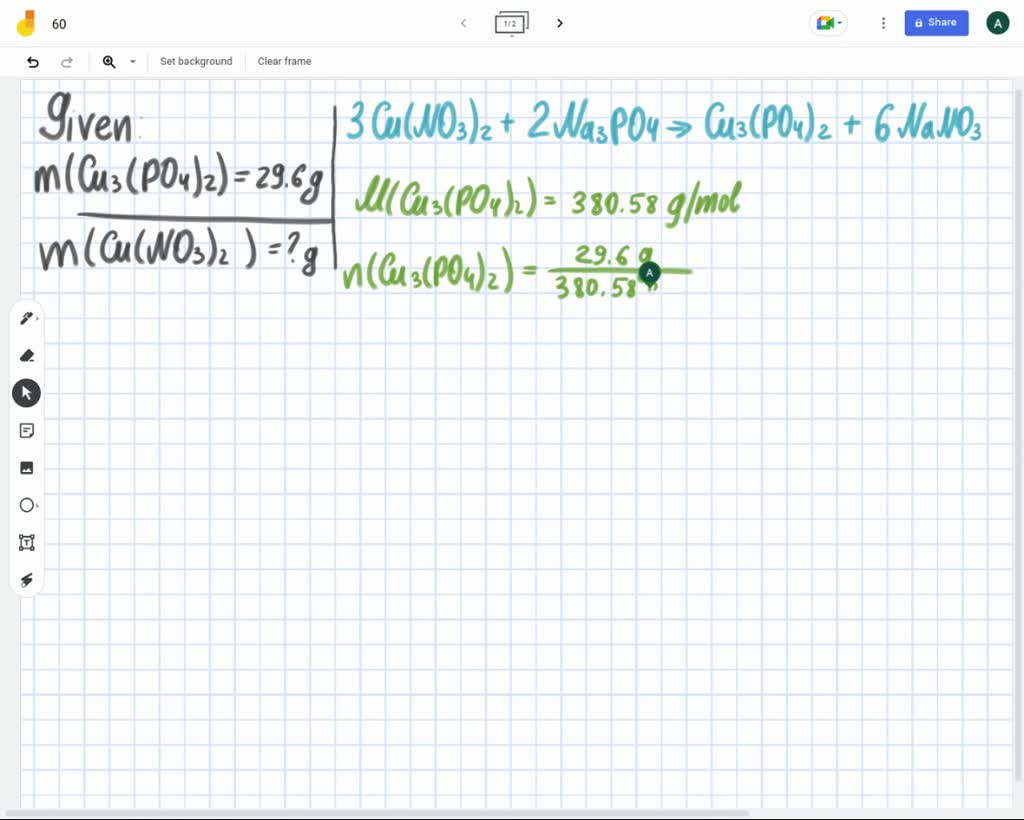 60
1/2
Share
A
Set background
Clear frame
Given:
m(Cu₃(PO₄)₂) = 29.6g
m(Cu(NO₃)₂ ) = ? g
3Cu(NO₃)₂ + 2Na₃PO₄ → Cu₃(PO₄)₂ + 6NaNO₃
M(Cu₃(PO₄)₂) = 380.58 g/mol
n(Cu₃(PO₄)₂) = 29.6 g
380.58
A